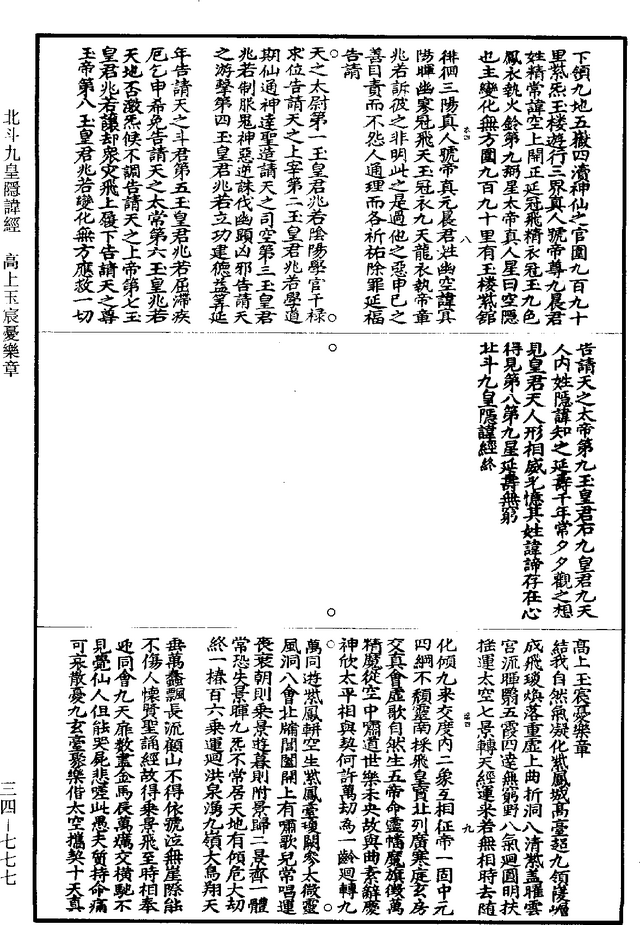 下領九地五嶽四瀆神仙之官圍九百九十
里紫炁玉樓遊行三界真人號帝尊九晨君
姓精常諱空上開正延冠飛精衣冠玉九色
鳳衣執火鈴第九弼星太帝真人星曰空隱
也主變化無方圍九百九十里有玉樓紫館
徘徊三陽真人號帝真元晨君姓幽空諱冥
陽暉幽寥冠飛天玉冠衣九天龍衣執帝章
兆若訴彼之非明此之是過他之惡申已之
善目責而不怨人通理而各祈祐除罪延福
告請
天之太尉第一玉皇君兆若陰陽學官千祿
求位告請天之上宰第二玉皇君兆若學道
期仙通神達聖造請天之司空第三玉皇君
兆若制服鬼神惡逆誅伐幽顯凶邪告請天
之游擊第四玉皇君兆若立功建德益筭延
年告請天之斗君第五玉皇君兆若屈滯疾
厄乞申希免告請天之太常第六玉皇兆若
天地否激炁候不調告請天之上帝第七玉
皇君兆若讓却衆灾飛上廢下告請天之尊
玉帝第八玉皇君兆若變化無方應救一切
告請天之太帝第九玉皇君右九皇君九天
人內姓隱諱知之延壽千年常夕夕觀之想
見皇君天人形相威光憶其姓諱諦存在心
得見第八第九星延壽無窮
北斗九皇隱諱經終
高上玉宸憂樂章
結我自然氣凝化紫鳳城高臺超九領嵯㠉
成飛瓊煥落重虛上曲折洞八清紫蓋罹雲
宮流聯翳五霞四達無窮野八氣迴圓明扶
推運太空七景轉天經運來若無相時去随
化傾九來交度內二象互相征帝一固中元
四綱不頹靈南採飛皇實北列廣寒庭玄房
交真會虛歌自然生五帝命靈幡魔旗徵萬
精魔從空中嘯道世樂未央故與曲素辭慶
神欣太平相與契何許萬劫為一齡迴轉九
萬同遊紫鳳軿空生紫鳳臺瓊闕參太微靈
風洞八會北牖闔闔開上有嘯歌兒常唱運
喪衰朝則乘景遊暮則附景歸二景齊一體
常恐失景暉九炁不常居天地有傾危大劫
終一椿百六乗運迴洪泉湧九領大鳥翔天
毋萬鑫飄長流顧山不得依號泣無崖際能
不傷人懷質聖誦經故得乗景飛至時相奉
迎同會九天扉敷畫金馬辰萬癘交横馳不
見覺仙人但能哭屍悲嗟此愚夫貿持命痛
可哀散憂九玄臺聚樂偕太空攜契十天真
北斗九皇隱諱經　高上玉宸憂樂章
三四－七七七